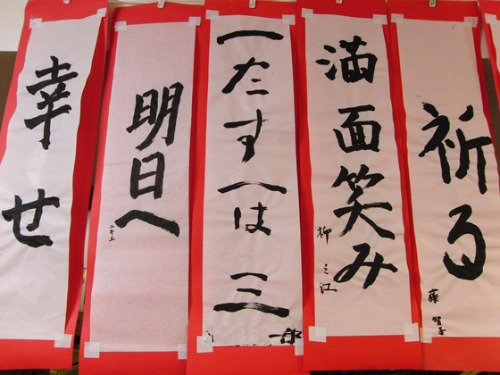 祈る
藤 智子
満面笑み
一たす一は三
明日へ
幸せ